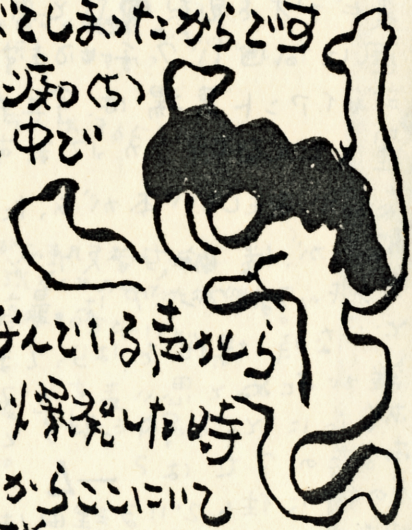 てしまったからです
痴(ち)
中で
んでいる声から
爆発した時
からここにいて